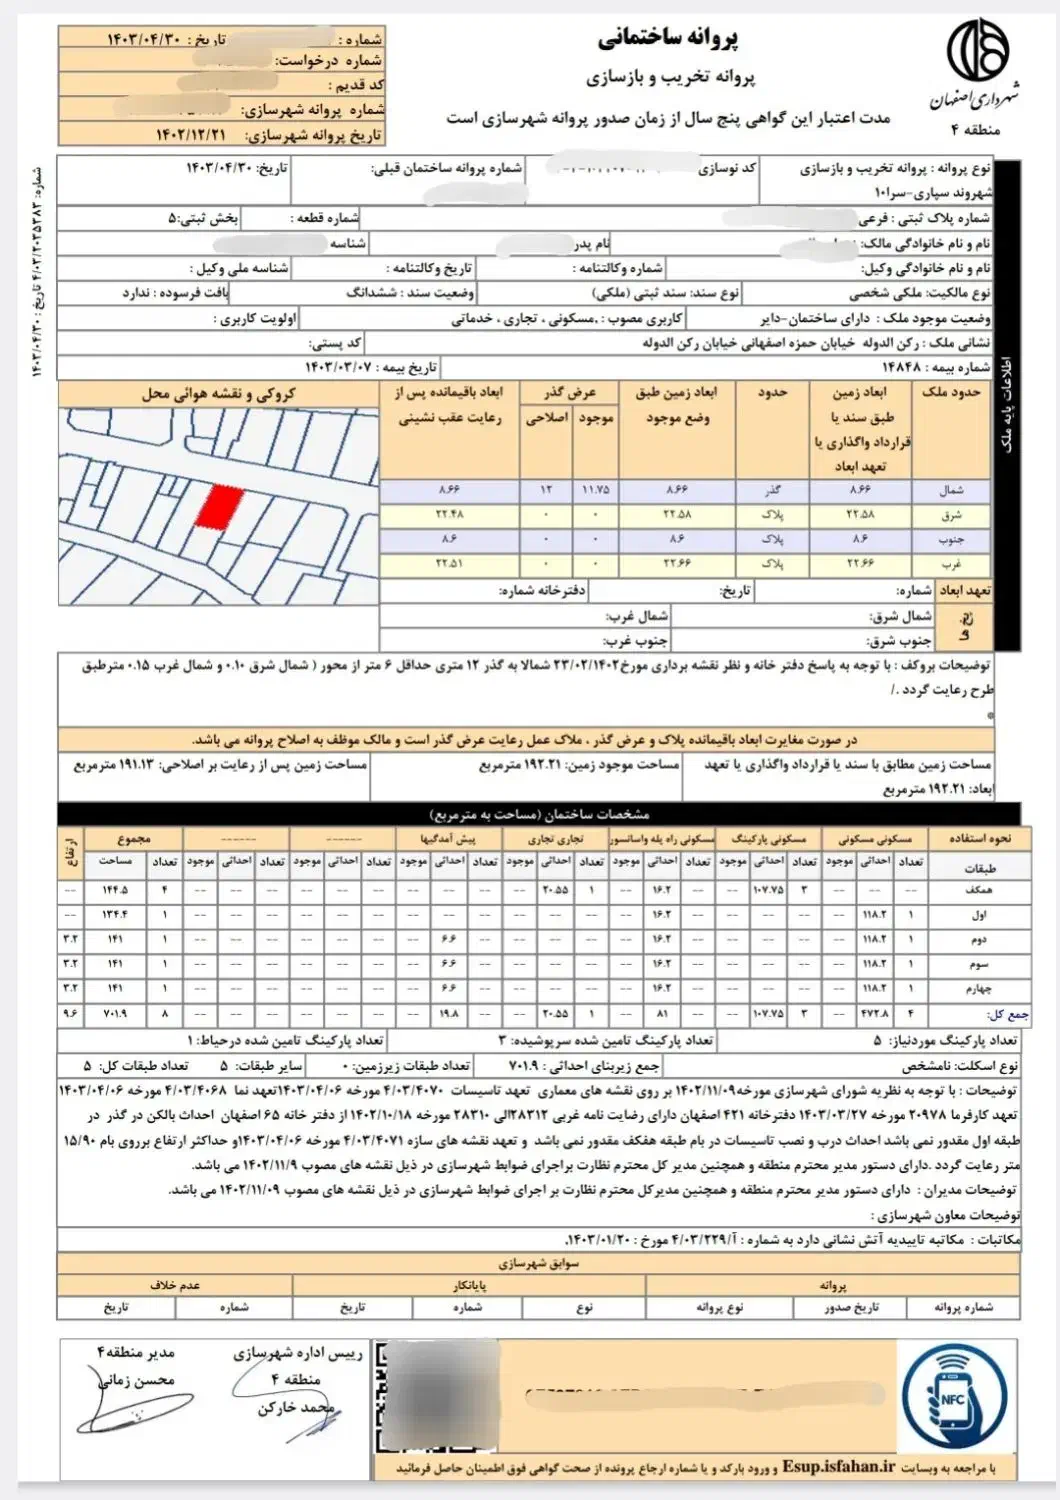 پروانه ساختمانی
پروانه تخریب و بازسازی
مدت اعتبار این گواهی پنج سال از زمان صدور پروانه شهرسازی است
شهرداری اصفهان
منطقه ۴
شماره : تاریخ : ۱۴۰۳/۰۴/۳۰
شماره درخواست:
کد قدیم :
شماره پروانه شهرسازی:
تاریخ پروانه شهرسازی: ۱۴۰۲/۱۲/۲۱
شماره: ۴/۰۳/۲۰۲۵۳۸۳ تاریخ : ۱۴۰۳/۰۴/۳۰
اطلاعات پایه ملک
نوع پروانه : پروانه تخریب و بازسازی کد نوسازی شماره پروانه ساختمان قبلی: تاریخ: ۱۴۰۳/۰۴/۳۰
شهروند سپاری-سرا۱۰
شماره پلاک ثبتی : فرعی شماره قطعه : بخش ثبتی:۵
نام و نام خانوادگی مالک: نام پدر شناسه
نام و نام خانوادگی وکیل: شماره وکالتنامه : تاریخ وکالتنامه : شناسه ملی وکیل :
نوع مالکیت: ملکی شخصی نوع سند: سند ثبتی (ملکی) وضعیت سند : ششدانگ بافت فرسوده : ندارد
وضعیت موجود ملک : دارای ساختمان-دایر کاربری مصوب : ,مسکونی , تجاری , خدماتی اولویت کاربری :
نشانی ملک : رکن الدوله خیابان حمزه اصفهانی خیابان رکن الدوله کد پستی:
شماره بیمه : ۱۴۸۴۸ تاریخ بیمه : ۱۴۰۳/۰۳/۰۷
حدود ملک ابعاد زمین طبق سند یا قرارداد واگذاری یا تعهد ابعاد حدود ابعاد زمین طبق وضع موجود عرض گذر موجود اصلاحی ابعاد باقیمانده پس از رعایت عقب نشینی کروکی و نقشه هوائی محل
شمال ۸.۶۶ گذر ۸.۶۶ ۱۱.۷۵ ۱۲ ۸.۶۶
شرق ۲۲.۵۸ پلاک ۲۲.۵۸ ۰ ۰ ۲۲.۴۸
جنوب ۸.۶ پلاک ۸.۶ ۰ ۰ ۸.۶
غرب ۲۲.۶۶ پلاک ۲۲.۶۶ ۰ ۰ ۲۲.۵۱
تعهد ابعاد شماره: تاریخ: دفترخانه شماره:
پخ ها شمال شرق: شمال غرب:
جنوب شرق: جنوب غرب:
توضیحات بروکف : با توجه به پاسخ دفتر خانه و نظر نقشه برداری مورخ۲۳/۰۲/۱۴۰۲ شمالا به گذر ۱۲ متری حداقل ۶ متر از محور ( شمال شرق ۰.۱۰ و شمال غرب ۰.۱۵ مترطبق
طرح رعایت گردد ./
*
در صورت مغایرت ابعاد باقیمانده پلاک و عرض گذر ، ملاک عمل رعایت عرض گذر است و مالک موظف به اصلاح پروانه می باشد.
مساحت زمین مطابق با سند یا قرارداد واگذاری یا تعهد مساحت موجود زمین: ۱۹۲.۲۱ مترمربع مساحت زمین پس از رعایت بر اصلاحی: ۱۹۱.۱۳ مترمربع
ابعاد: ۱۹۲.۲۱ مترمربع
مشخصات ساختمان (مساحت به مترمربع)
نحوه استفاده مسکونی مسکونی مسکونی پارکینگ مسکونی راه پله واسانسور تجاری تجاری پیش آمدگیها ------ ------ مجموع ارتفاع
طبقات تعداد احداثی موجود تعداد احداثی موجود تعداد احداثی موجود تعداد احداثی موجود تعداد احداثی موجود تعداد احداثی موجود تعداد احداثی موجود تعداد مساحت
همکف -- -- -- ۳ ۱۰۷.۷۵ -- -- ۱۶.۲ -- ۱ ۲۰.۵۵ -- -- -- -- -- -- -- -- -- -- ۴ ۱۴۴.۵ --
اول ۱ ۱۱۸.۲ -- -- -- -- -- ۱۶.۲ -- -- -- -- -- -- -- -- -- -- -- -- -- ۱ ۱۳۴.۴ --
دوم ۱ ۱۱۸.۲ -- -- -- -- -- ۱۶.۲ -- -- -- -- -- ۶.۶ -- -- -- -- -- -- -- ۱ ۱۴۱ ۳.۲
سوم ۱ ۱۱۸.۲ -- -- -- -- -- ۱۶.۲ -- -- -- -- -- ۶.۶ -- -- -- -- -- -- -- ۱ ۱۴۱ ۳.۲
چهارم ۱ ۱۱۸.۲ -- -- -- -- -- ۱۶.۲ -- -- -- -- -- ۶.۶ -- -- -- -- -- -- -- ۱ ۱۴۱ ۳.۲
جمع کل: ۴ ۴۷۲.۸ -- ۳ ۱۰۷.۷۵ -- -- ۸۱ -- ۱ ۲۰.۵۵ -- -- ۱۹.۸ -- -- -- -- -- -- -- ۸ ۷۰۱.۹ ۹.۶
تعداد پارکینگ موردنیاز: ۵ تعداد پارکینگ تامین شده سرپوشیده: ۳ تعداد پارکینگ تامین شده درحیاط: ۱
نوع اسکلت: نامشخص جمع زیربنای احداثی : ۷۰۱.۹ تعداد طبقات زیرزمین: ۰ سایر طبقات: ۵ تعداد طبقات کل: ۵
توضیحات : با توجه به نظریه شورای شهرسازی مورخه۱۴۰۲/۱۱/۰۹ بر روی نقشه های معماری تعهد تاسیسات ۴/۰۳/۴۰۷۰ مورخه ۱۴۰۳/۰۴/۰۶تعهد نما ۴/۰۳/۴۰۶۸ مورخه ۱۴۰۳/۰۴/۰۶
تعهد کارفرما ۲۰۹۷۸ مورخه ۱۴۰۳/۰۳/۲۷ دفترخانه ۴۲۱ اصفهان دارای رضایت نامه غربی ۲۸۳۱۲الی ۲۸۳۱۰ مورخه ۱۴۰۲/۱۰/۱۸ از دفتر خانه ۶۵ اصفهان احداث بالکن در گذر در
طبقه اول مقدور نمی باشد احداث درب و نصب تاسیسات در بام طبقه هفکف مقدور نمی باشد و تعهد نقشه های سازه ۴/۰۳/۴۰۷۱ مورخه ۱۴۰۳/۰۴/۰۶و حداکثر ارتفاع برروی بام ۱۵/۹۰
متر رعایت گردد .دارای دستور مدیر محترم منطقه و همچنین مدیر کل محترم نظارت براجرای ضوابط شهرسازی در ذیل نقشه های مصوب ۱۴۰۲/۱۱/۹ می باشد.
توضیحات مدیران : دارای دستور مدیر محترم منطقه و همچنین مدیرکل محترم نظارت بر اجرای ضوابط شهرسازی در ذیل نقشه های مصوب ۱۴۰۲/۱۱/۰۹ می باشد.
توضیحات معاون شهرسازی :
مکاتبات : مکاتبه تاییدیه آتش نشانی دارد به شماره : آ/۴/۰۳/۲۲۹ مورخ : ۱۴۰۳/۰۱/۲۰,
سوابق شهرسازی
پروانه پایانکار عدم خلاف
شماره پروانه تاریخ صدور نوع پروانه نوع شماره تاریخ شماره تاریخ
رییس اداره شهرسازی منطقه ۴
محمد خارکن
مدیر منطقه۴
محسن زمانی
NFC
با مراجعه به وبسایت Esup.isfahan.ir و ورود بارکد و یا شماره ارجاع پرونده از صحت گواهی فوق اطمینان حاصل فرمائید